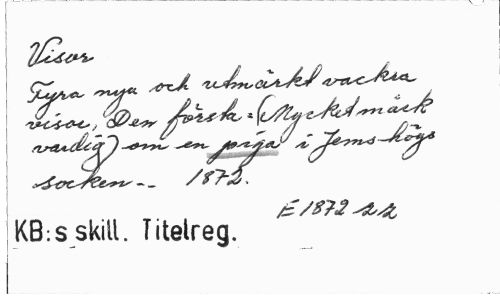 Visor
Fyra nya och utmärkt vackra
visor, Den första: (Mycket märk
vardig) om en piga i Jemshögs
socken-- 1872.
E 1872 22
KB:s skill. Titelreg.